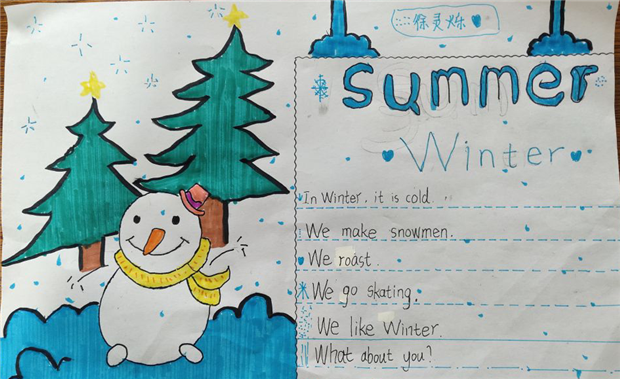 徐灵烁
summer
Winter
In Winter, it is cold.
We make snowmen.
We roast.
We go skating.
We like Winter.
What about you?